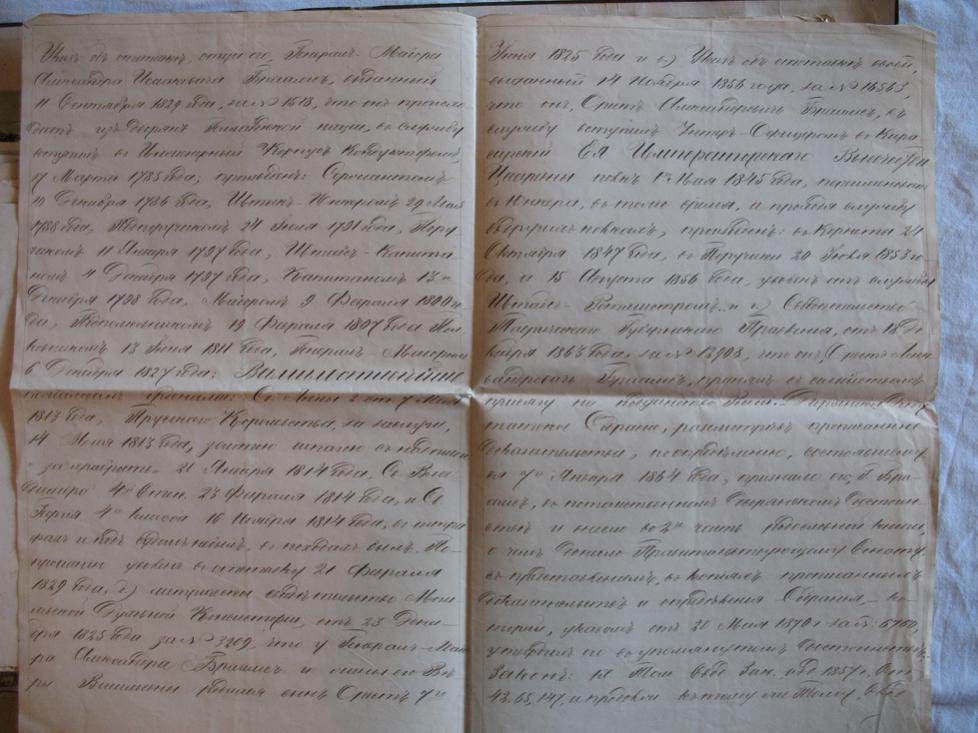 Указъ объ отставкѣ, отца его, Генералъ-Маіора
Александра Ивановича Браамсъ, выданный
11 Сентября 1829 года, за № 1518, что онъ происхо-
дитъ изъ дворянъ Голландской націи, въ службу
вступилъ въ Инженерный Корпусъ Кондукторомъ
7 Марта 1785 года; произведенъ: Сержантомъ
Декабря 1786 года, Штыкъ-Юнкеромъ 29 Мая
1788 года, Подпоручикомъ 24 Іюля 1791 года, Пору-
чикомъ 11 Января 1797 года, Штабсъ-Капита-
номъ 4 Декабря 1797 года, Капитаномъ 13
Декабря 1798 года, Маіоромъ 9 Февраля 1800 го-
да, Подполковникомъ 19 Февраля 1807 года Пол-
ковникомъ 13 Іюня 1811 года, Генералъ-Маіоромъ
6 Декабря 1827 года; Всемилостивѣйше
Св. Анны 2 ст 7 Мая
1813 года, Прусскаго Королевства, за заслуги,
14 Іюля 1813 года, золотою шпагою съ надписью
за храбрость 21 Января 1814 года, Св. Вла-
диміра 4й степ. 23 Февраля 1814 года, и Св.
Георгія 4го класса 16 Ноября 1814 года, въ штра-
фахъ и подъ судомъ не былъ, въ походахъ былъ. По
прошенію уволенъ въ отставку 21 Февраля
1829 года, д) метрическое свидѣтельство Моги-
левской Духовной Консисторіи, отъ 23 Дека-
бря 1825 года за № 3209, что у Генералъ-Маіо-
ра Александра Браамсъ и жены его Вѣ-
ры родился сынъ Орестъ 7го
Іюня 1825 года и е) Указъ объ отставкѣ своей,
выданный 14 Ноября 1856 года, за № 16563,
что онъ, Орестъ Александровичъ Браамсъ, въ
службу вступилъ Унтеръ-Офицеромъ въ Кира-
сирскій Ея Императорскаго Высочества
Цесаревны полкъ 1го Мая 1845 года, переименованъ
въ Юнкера, въ тоже время, и проходя службу
въ томъ полкахъ, произведенъ: въ Корнеты 24
Октября 1847 года, въ Поручики 20 Іюня 1853 го-
да, а 15 Августа 1856 года, уволенъ отъ службы
Штабсъ-Ротмистромъ. и ж) Свидѣтельство
Таврическаго Губернскаго Правленія, отъ 18 Де-
кабря 1863 года, за № 12908, что онъ, Орестъ Алек-
сандровичъ Браамсъ, принялъ
присягу на подданство Депутатское
Собраніе, разсмотрѣвъ прописанныя
доказательства, по опредѣленію, состоявшему-
ся 7го Января 1864 года, признало его, Г. Бра-
амсъ, въ потомственномъ дворянскомъ достоин-
ствѣ и внесло во 2ю часть родословной книги,
о чемъ донесло Правительствующему Сенату
съ представленіемъ, въ копіяхъ прописанныхъ
доказательствъ и опредѣленія Собранія, ко-
торый, указомъ отъ 20 Мая 1870 г. за №: 5760,
утвердилъ его въ упомянутомъ достоинствѣ.
Законъ: IX Томъ Свод. Зак. изд. 1857 г.
43, 65, 147, и продолж. къ тому же Тому, Свод